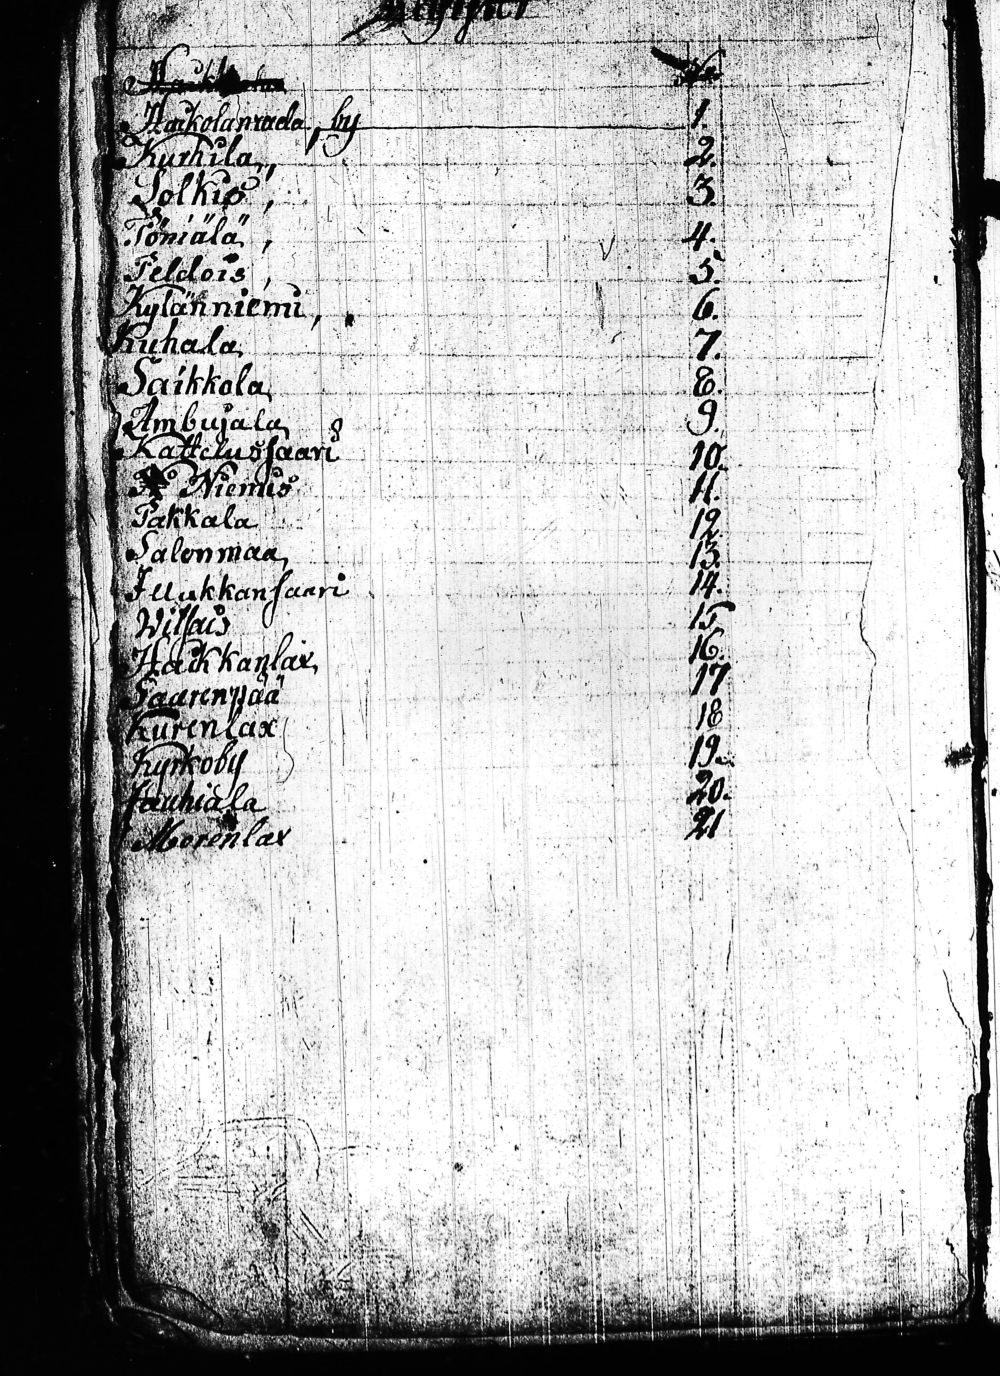 Register
No
Haikolanrada, by 1.
Kurhila, 2.
Solkis, 3.
Töniälä, 4.
Peldois, 5.
Kylänniemi, 6.
Kuhala 7.
Saikkola 8.
Ambujala 9.
Kattelussaari 10.
Niemis 11.
Pakkala 12
Salonmaa 13.
Juukkansaari 14.
Willais 15
Haikkanlax 16.
Saarenpää 17
Kurenlax 18
Kyrkoby 19.
Jauhiala 20.
Morenlax 21